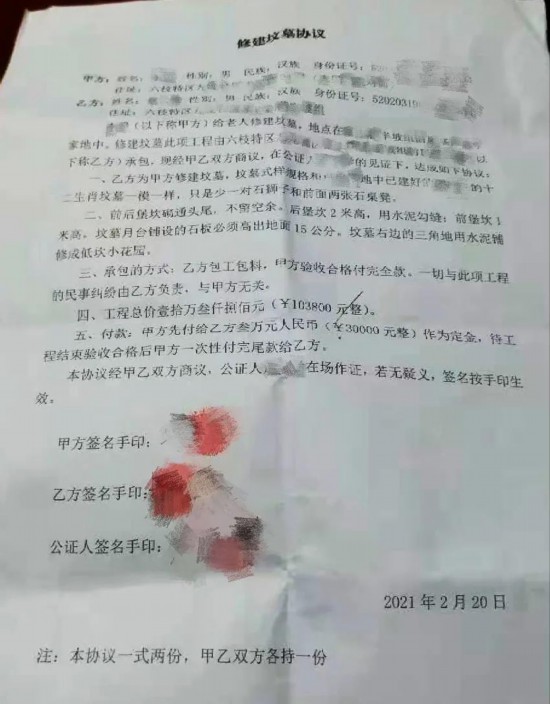 修建坟墓协议
甲方：姓名：李 性别：男 民族：汉族 身份证号：
住址：六枝特区大
乙方：姓名： 性别：男 民族：汉族 身份证号：52020319
住址：六枝特区
（以下称甲方）给老人修建坟墓，地点在
家地中。修建坟墓此项工程由六枝特区 以
下称乙方）承包，现经甲乙双方商议，在公证 的见证下，达成如下协议：
一、乙方为甲方修建坟墓，坟墓式样规格和 地中已建好 的十
二生肖坟墓一模一样，只是少一对石狮子和前面两张石桌凳。
二、前后堡坎砌通头尾，不留空余。后堡坎2米高，用水泥勾缝；前堡坎1
米高。坟墓月台铺设的石板必须高出地面15公分。坟墓右边的三角地用水泥铺
修成低坎小花园。
三、承包的方式：乙方包工包料，甲方验收合格付完全款。一切与此项工程
的民事纠纷由乙方负责，与甲方无关。
四、工程总价壹拾万叁仟捌佰元（￥103800元整）。
五、付款：甲方先付给乙方叁万元人民币（￥30000元整）作为定金，待工
程结束验收合格后甲方一次性付完尾款给乙方。
本协议经甲乙双方商议，公证人 在场作证，若无疑义，签名按手印生
效。
甲方签名手印：
乙方签名手印：
公证人签名手印：
2021年2月20日
注：本协议一式两份，甲乙双方各持一份